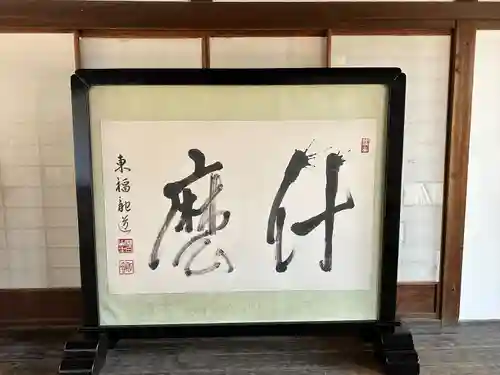 什麼
東福龍道